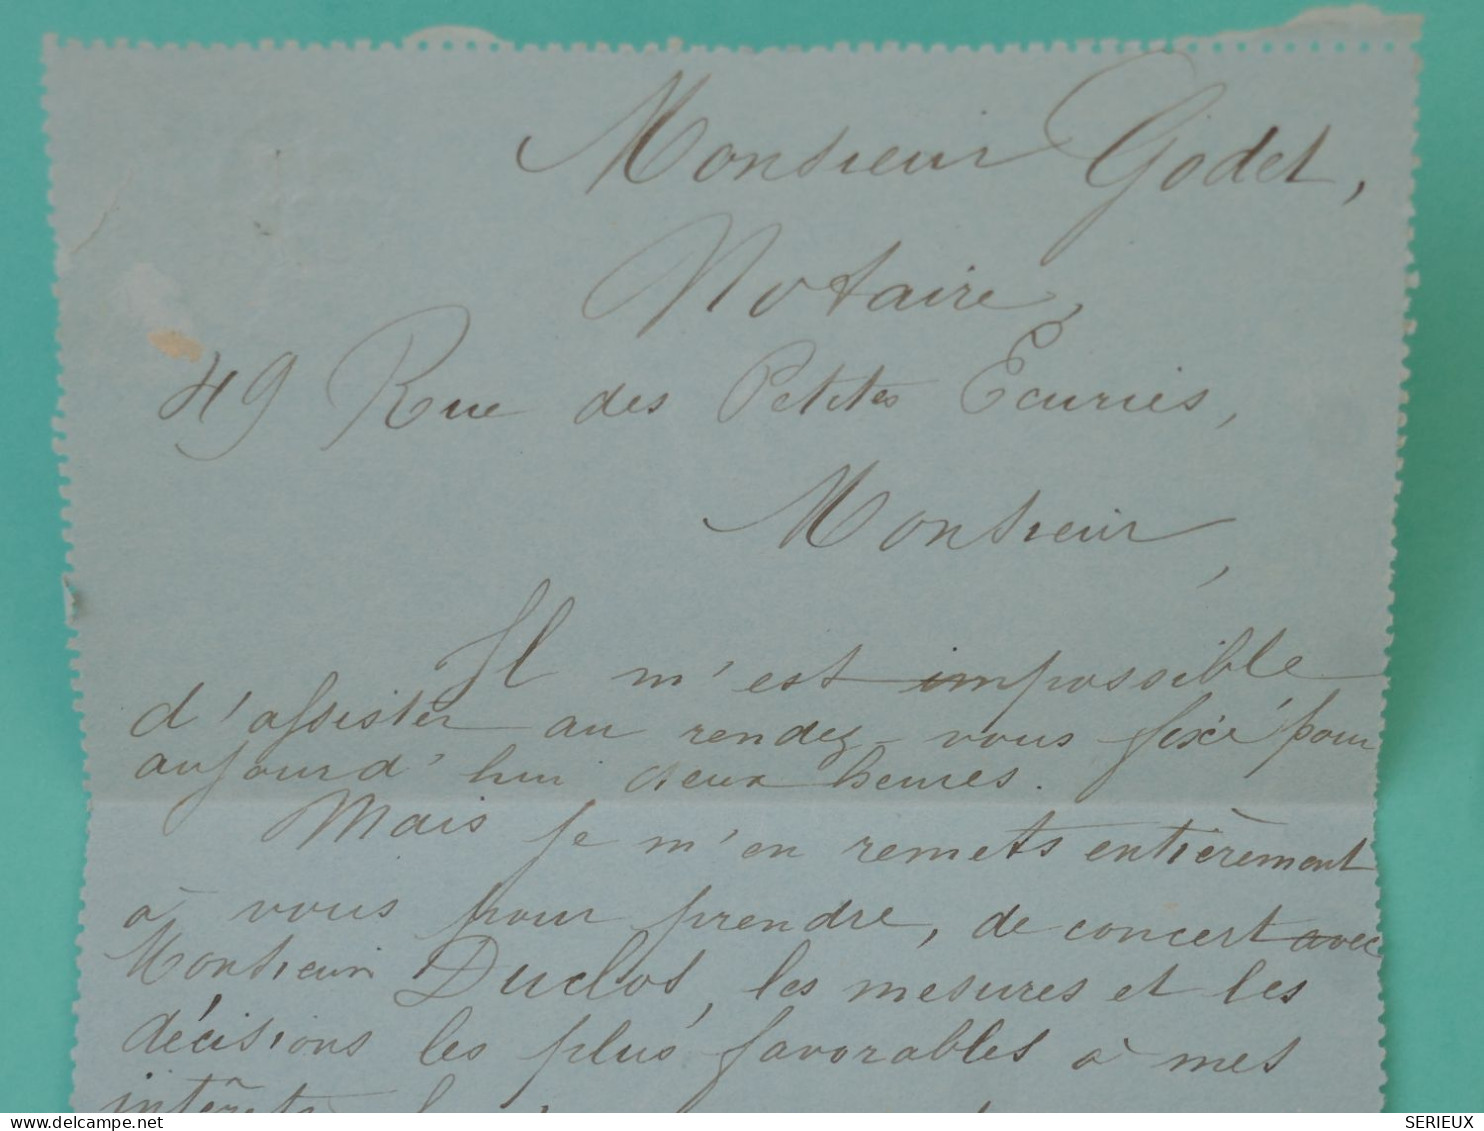 Monsieur Godet,
Notaire,
49 Rue des Petites Ecuries,
Monsieur,
Il m'est impossible
d'assister au rendez-vous fixé pour
aujourd'hui deux heures.
Mais je m'en remets entièrement
à vous pour prendre, de concert avec
Monsieur Duclos, les mesures et les
décisions les plus favorables à mes
intérêts
www.delcampe.net
SERIEUX